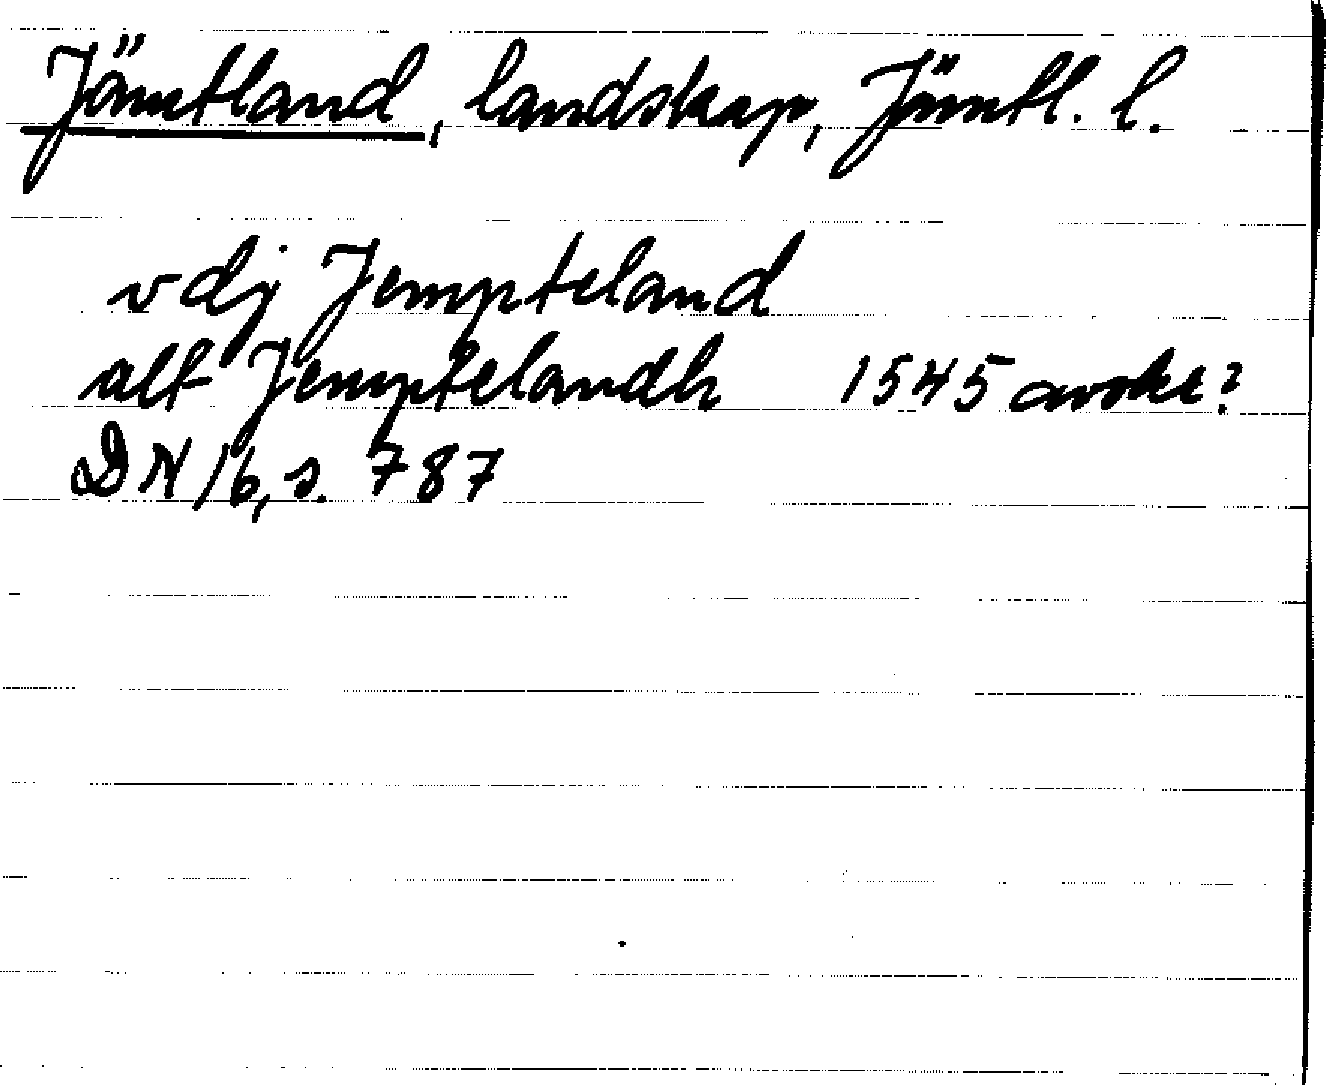 Jämtland, landskap, Jämtl. l.
vdj Jempteland
alt Jemptelandh 1545 avskr?
DN 16, s. 787